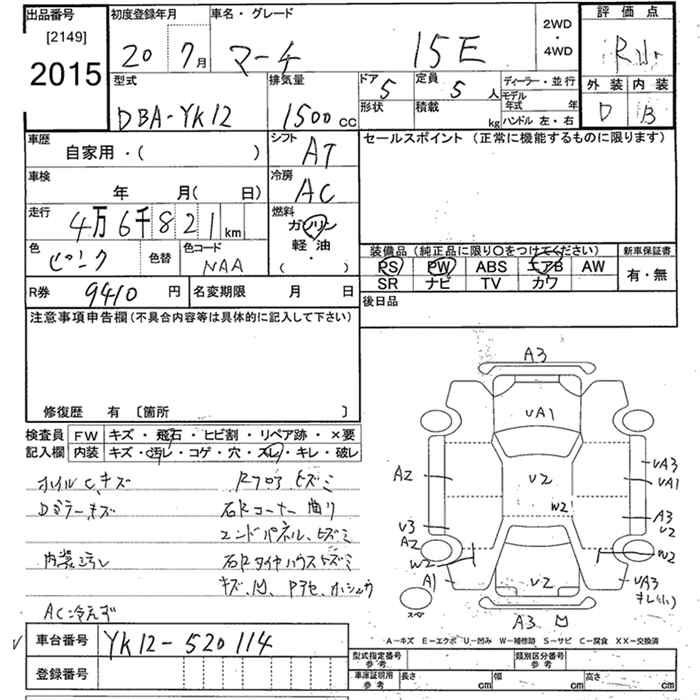 出品番号 [2149] 2015
初度登録年月 20年 7月
車名・グレード マーチ 15E
2WD・4WD
評価点
外装 D 内装 B
型式 DBA-YK12
排気量 1500cc
ドア 5 形状
定員 5人 積載 kg
ディーラー・並行
モデル年式 年
ハンドル 左・右
車歴 自家用・( )
シフト AT
セールスポイント (正常に機能するものに限ります)
車検 年 月( 日)
冷房 AC
走行 4万6千821km
燃料 ガソリン・軽油・( )
色 ピンク 色替 色コード NAA
装備品 (純正品に限り〇をつけてください)
新車保証書 有・無
PS PW ABS エアB AW
SR ナビ TV カワ
R券 9410円 名変期限 月 日
後日品
注意事項申告欄 (不具合内容等は具体的に記入して下さい)
修復歴 有 [箇所 ]
検査員記入欄 FW キズ・飛石・ヒビ割・リペア跡・×要
内装 キズ・汚レ・コゲ・穴・スレ・キレ・破レ
ホイルC、キズ Rフロアヒズミ
Dミラーキズ 右Rコーナー曲リ
エンドパネル、ヒズミ
内装汚レ 右Rタイヤハウスヒズミ
AC冷えず
車台番号 YK12-520114
登録番号
A3
VA1
A2 V2 VA3
VA1
W2
V3 A3
V2
A2
W2 W2
A1 V2 VA3
キレ(小)
スペ
A3 凹
A-キズ E-エクボ U-凹み W-補修跡 S-サビ C-腐食 XX-交換済
型式指定番号 参考 類別区分番号 参考
車庫証明用 参考 長さ cm 幅 cm 高さ cm